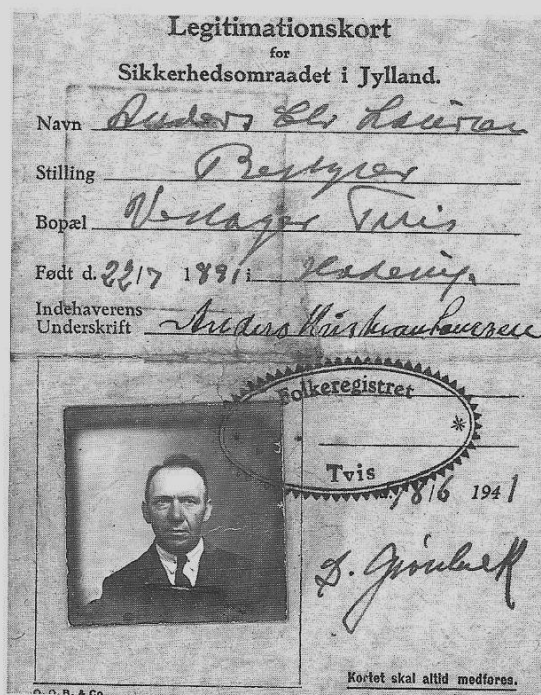 Legitimationskort
for
Sikkerhedsomraadet i Jylland.
Navn Anders Chr Laursen
Stilling Bestyrer
Bopæl Vestager Tvis
Født d. 22/7 1891 i
Indehaverens
Underskrift Anders Kristian Laursen
Folkeregistret
*
Tvis
d. 18/6 1941
D. Grønbæk
Kortet skal altid medføres.
O. O. B. & Co.